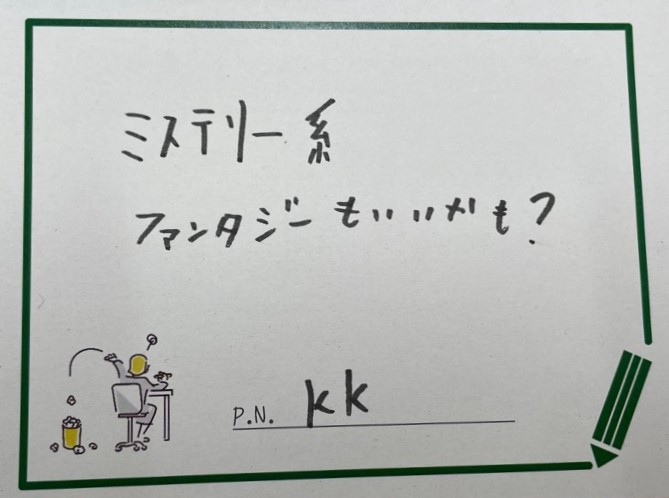 ミステリー系
ファンタジーもいいかも?
P.N. kk